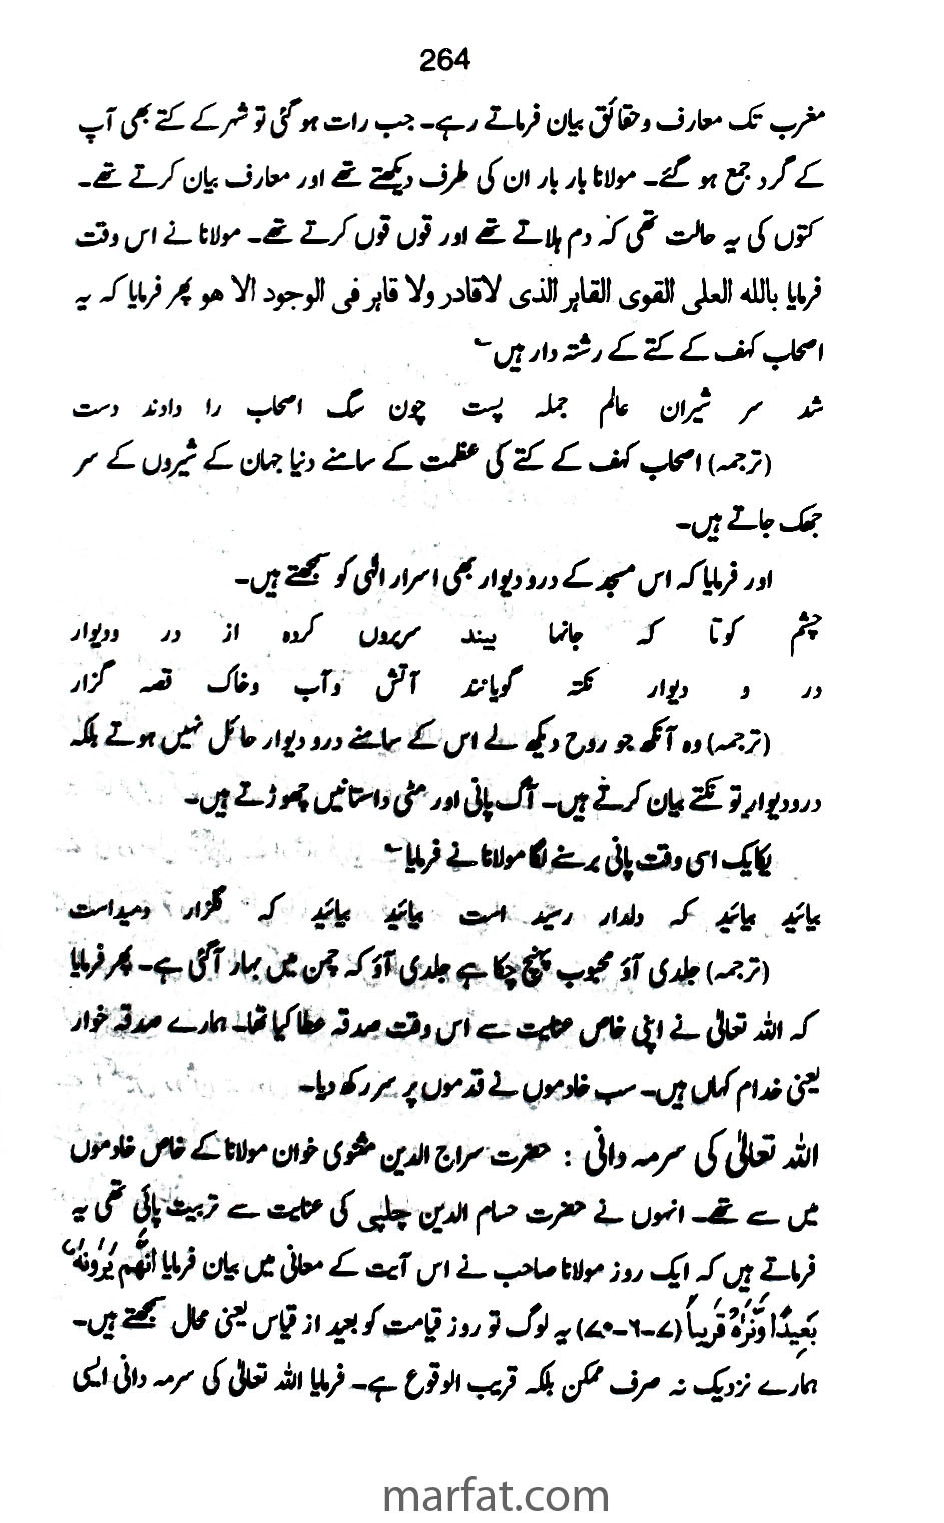 264
مغرب تک معارف و حقائق بیان فرماتے رہے۔ جب رات ہو گئی تو شہر کے کتے بھی آپ
کے گرد جمع ہو گئے۔ مولانا بار بار ان کی طرف دیکھتے تھے اور معارف بیان کرتے تھے۔
کتوں کی یہ حالت تھی کہ دم ہلاتے تھے اور قوں قوں کرتے تھے۔ مولانا نے اس وقت
فرمایا باللہ العلی القوی القاہر الذی لاقادر ولا قاہر فی الوجود الا ھو پھر فرمایا کہ یہ
اصحاب کہف کے کتے کے رشتہ دار ہیں ؎
شد سر شیران عالم جملہ پست چون سگ اصحاب را دادند دست
(ترجمہ) اصحاب کہف کے کتے کی عظمت کے سامنے دنیا جہان کے شیروں کے سر
جھک جاتے ہیں۔
اور فرمایا کہ اس مسجد کے درو دیوار بھی اسرار الٰہی کو سمجھتے ہیں۔
چشم کوتا کہ جانہا بیند سربروں کردہ از در ودیوار
در و دیوار نکتہ گویانند آتش وآب وخاک قصہ گزار
(ترجمہ) وہ آنکھ جو روح دیکھ لے اس کے سامنے درو دیوار حائل نہیں ہوتے بلکہ
درودیوار تو نکتے بیان کرتے ہیں۔ آگ پانی اور مٹی داستانیں چھوڑتے ہیں۔
یکایک اسی وقت پانی برسنے لگا مولانا نے فرمایا ؎
بیائید بیائید کہ دلدار رسید است بیائید بیائید کہ گلزار دمیداست
(ترجمہ) جلدی آؤ محبوب پہنچ چکا ہے جلدی آؤ کہ چمن میں بہار آگئی ہے۔ پھر فرمایا
کہ اللہ تعالیٰ نے اپنی خاص عنایت سے اس وقت صدقہ عطا کیا تھا۔ ہمارے صدقہ خوار
یعنی خدام کہاں ہیں۔ سب خادموں نے قدموں پر سر رکھ دیا۔
اللہ تعالیٰ کی سرمہ دانی : حضرت سراج الدین مثنوی خوان مولانا کے خاص خادموں
میں سے تھے۔ انہوں نے حضرت حسام الدین چلپی کی عنایت سے تربیت پائی تھی یہ
فرماتے ہیں کہ ایک روز مولانا صاحب نے اس آیت کے معانی میں بیان فرمایا اَنَّھُم یَرَوْنَہٗ
بَعِیْدًا وَّنَرَاہُ قَرِیباً (۷-۶-۷۰) یہ لوگ تو روز قیامت کو بعید از قیاس یعنی محال سمجھتے ہیں۔
ہمارے نزدیک نہ صرف ممکن بلکہ قریب الوقوع ہے۔ فرمایا اللہ تعالیٰ کی سرمہ دانی ایسی
marfat.com